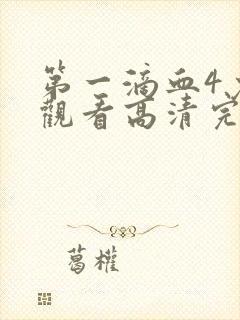 第一滴血4
觀看高清完
葛權